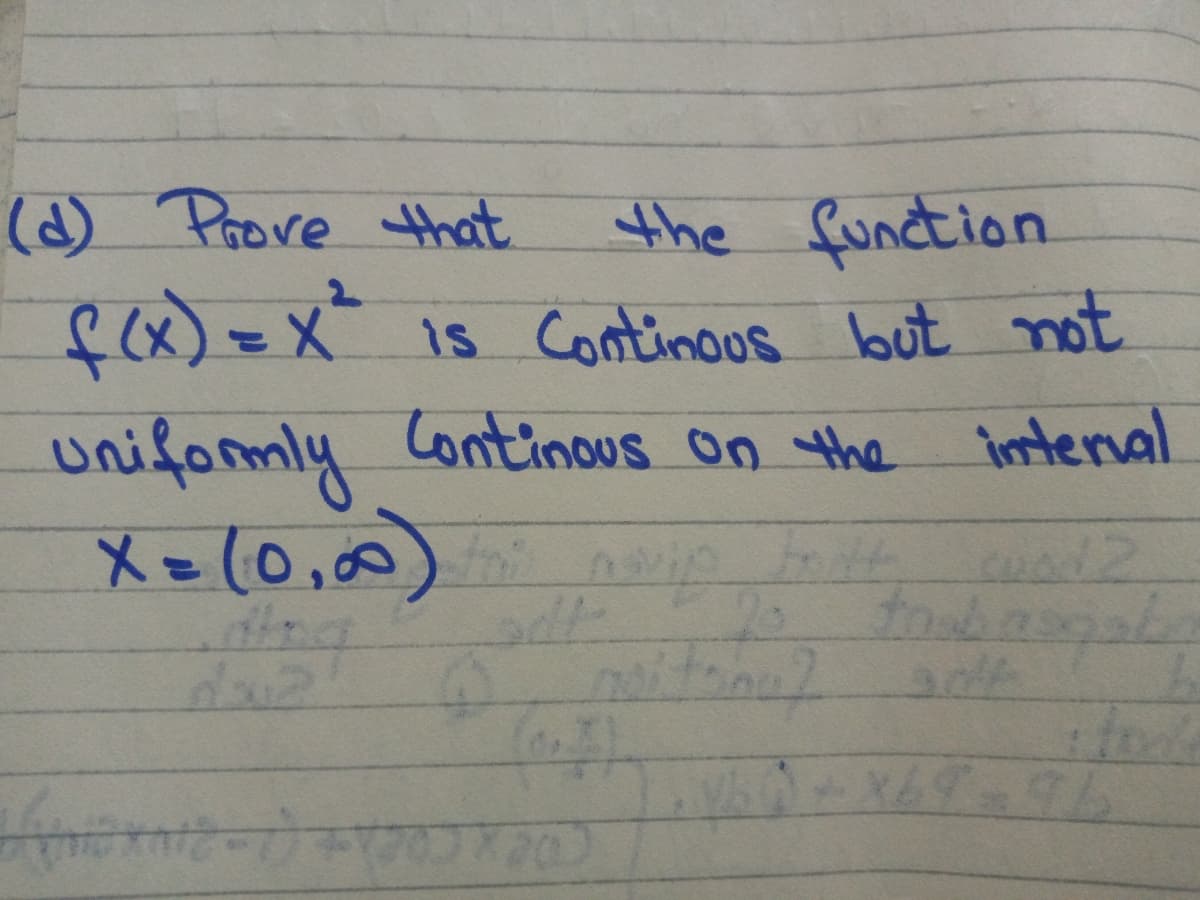 (d) Prove that the function
f(x) = x² is Continous but not
uniformly Continous on the interval
x = (0, ∞)